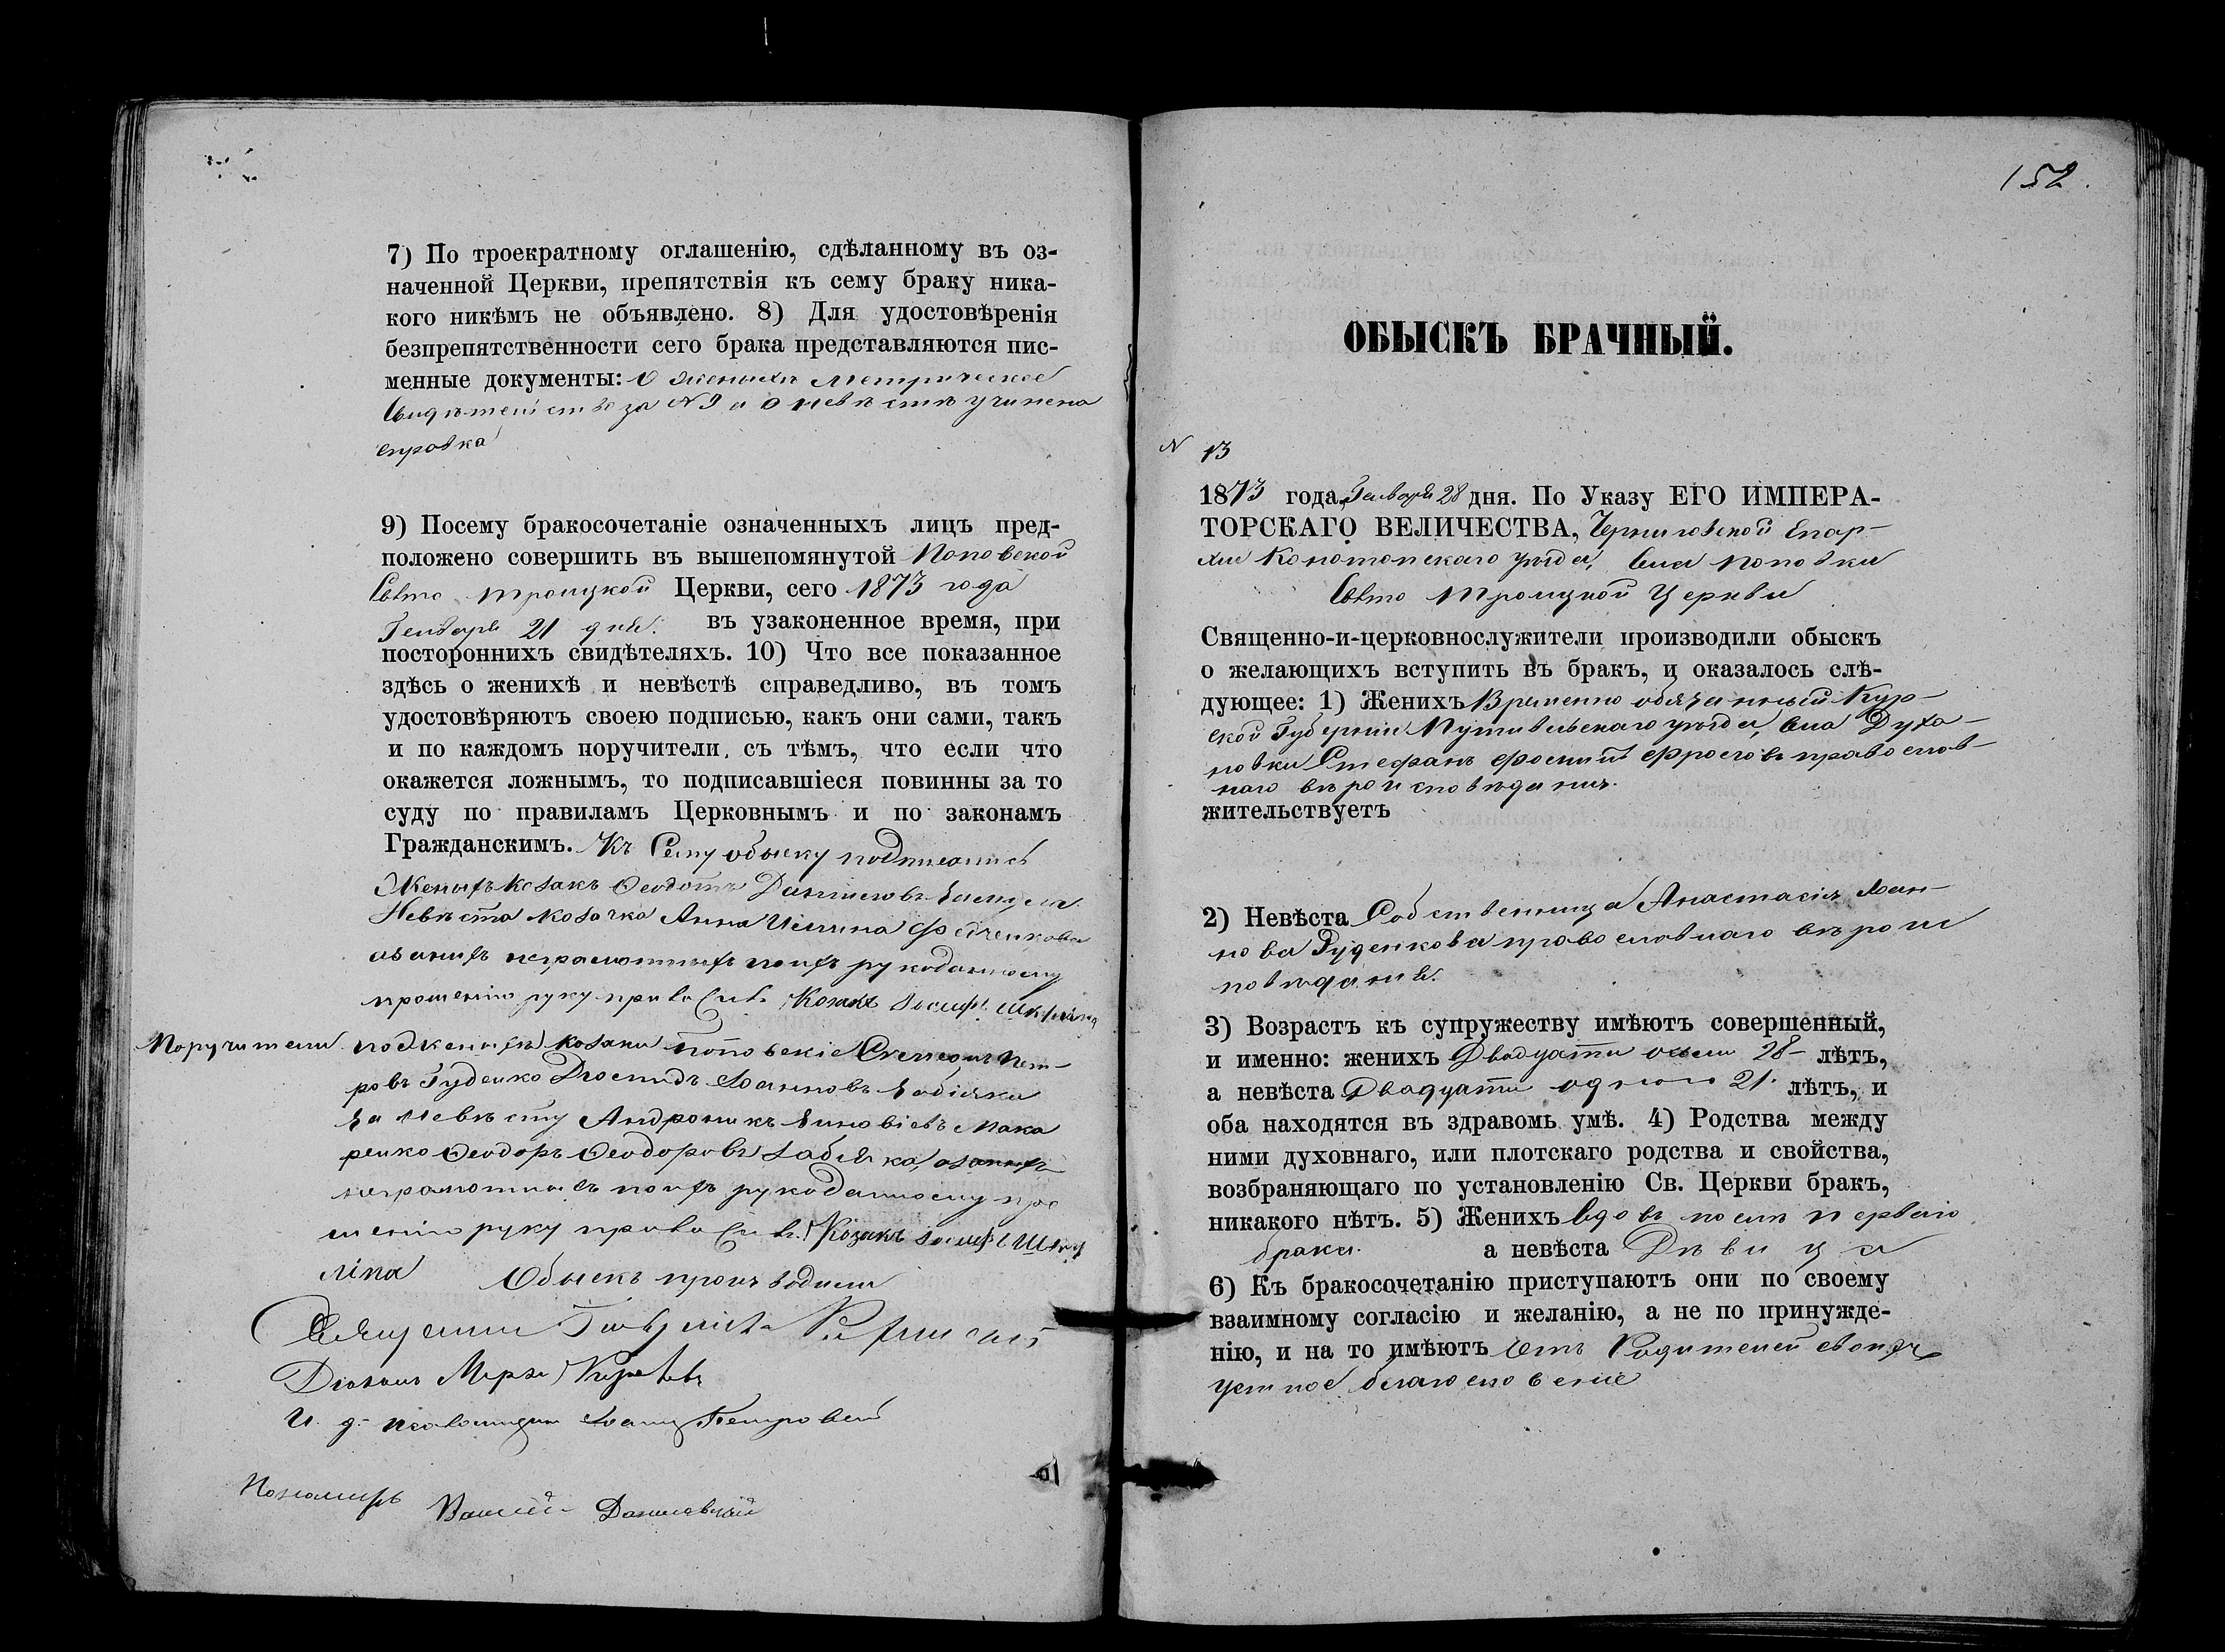 7) По троекратному оглашенію, сдѣланному въ оз-
наченной Церкви, препятствія къ сему браку ника-
кого никѣмъ не объявлено. 8) Для удостовѣренія
безпрепятственности сего брака представляются пис-
менные документы: О женихѣ Метрическое
Свидѣтельство за № 9 и о невѣстѣ учинена
справка
9) Посему бракосочетаніе означенныхъ лицъ пред-
положено совершить въ вышепомянутой Поповской
Свято Троицкой Церкви, сего 1873 года
Генваря 21 дня. въ узаконенное время, при
постороннихъ свидѣтеляхъ. 10) Что все показанное
здѣсь о женихѣ и невѣстѣ справедливо, въ томъ
удостовѣряютъ своею подписью, какъ они сами, такъ
и по каждомъ поручители, съ тѣмъ, что если что
окажется ложнымъ, то подписавшіеся повинны за то
суду по правиламъ Церковнымъ и по законамъ
Гражданскимъ. Къ Сему обыску подписались
Женихъ Козакъ Ѳеодотъ Даниловъ
Невѣста козачка Анна
а за нихъ неграмотныхъ по ихъ рукоданному
прошенію руку приложилъ Козакъ Іосифъ
Поручители по женихѣ козаки Поповскіе Пет-
ровъ Гуденко Іоанновъ
За Невѣсту Андроникъ Зиновіевъ Мака
ренко Ѳеодоръ Ѳеодоровъ Забіяка, а за нихъ
неграмотныхъ по ихъ рукоданному про
шенію руку приложилъ Козакъ Іосифъ
Обыскъ производили
Священникъ
Діаконъ
И. д. псаломщика Іоаннъ Петровскій
Пономарь Василій Данилевскій
152.
ОБЫСКЪ БРАЧНЫЙ.
№ 13
1873 года, Генваря 28 дня. По Указу ЕГО ИМПЕРА-
ТОРСКАГО ВЕЛИЧЕСТВА, Черниговской Епар-
хіи Конотопскаго уѣзда, Села Поповки
Свято Троицкой Церкви
Священно-и-церковнослужители производили обыскъ
о желающихъ вступить въ бракъ, и оказалось слѣ-
дующее: 1) Женихъ Временно обязанный Кур-
ской Губерніи Путивльскаго уѣзда, Села Духа-
новки Стефанъ православ-
наго вѣроисповѣданія.
жительствуетъ
2) Невѣста Собственница Анастасія Іоан-
нова Руденкова православнаго вѣроис
повѣданія.
3) Возрастъ къ супружеству имѣютъ совершенный,
и именно: женихъ Двадцати осьми 28 лѣтъ,
а невѣста Двадцати одного 21. лѣтъ, и
оба находятся въ здравомъ умѣ. 4) Родства между
ними духовнаго, или плотскаго родства и свойства,
возбраняющаго по установленію Св. Церкви бракъ,
никакого нѣтъ. 5) Женихъ вдовъ послѣ перваго
брака. а невѣста Дѣвица
6) Къ бракосочетанію приступаютъ они по своему
взаимному согласію и желанію, а не по принужде-
нію, и на то имѣютъ отъ Родителей своихъ
устное благословеніе